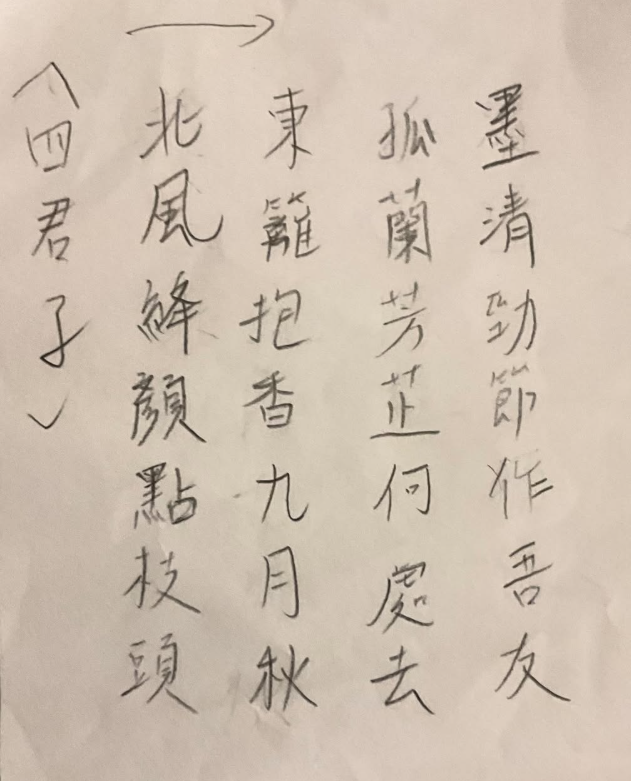 〈四君子〉
北風絳顏點枝頭
東籬抱香九月秋
孤蘭芳芷何處去
墨清勁節作吾友